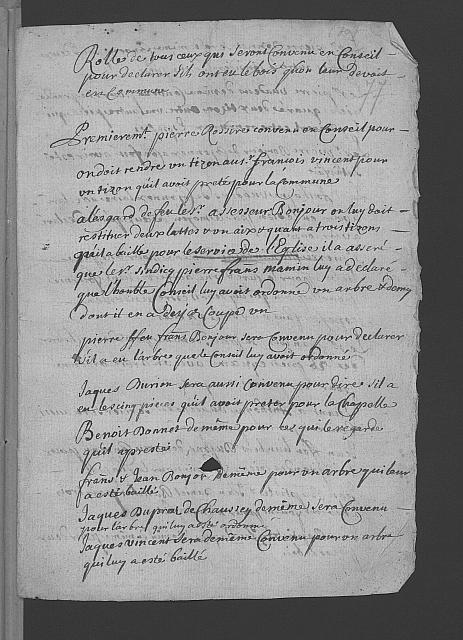 Rolle de tous ceux qui seront Convenu en Conseil
pour declarer sils ont eu le bois qu'on leur devoit
en Commun
77
Premierem.t pierre Rossire convenu en Conseil pour
on doit rendre un tizon au s.r francois vincent pour
un tizon quil avoit preté pour la Commune
a les gard de feu le s.r assesseur Bonjour on luy doit
restituer deux lattes von aix & quant a trois tizons
quil a baillé pour le service de l'Eglise il a asseré
que le s.r sindicq pierre frans mamin luy a declaré
que l'honble Conseil luy avoit ordonné un arbre & demy
dont il en a deja Coupé un
pierre ffeu frans Bonjour sera Convenu pour declarer
sil a eu larbre que le Conseil luy avoit ordonné
Jaques Durion sera aussi Convenu pour dire sil a
eu les cinq pieces quil avoit preter pour la Chapelle
Benoit Bonnet de même pour ces que le regarde
quil appresté
frans & Jean Bonjour de même pour un arbre qui leur
a esté baillé
Jaques Duprat de Chaussey de même sera Convenu
pour larbre qui luy a esté ordonné
Jaques vincent sera de même Convenu pour un arbre
qui luy a esté baillé